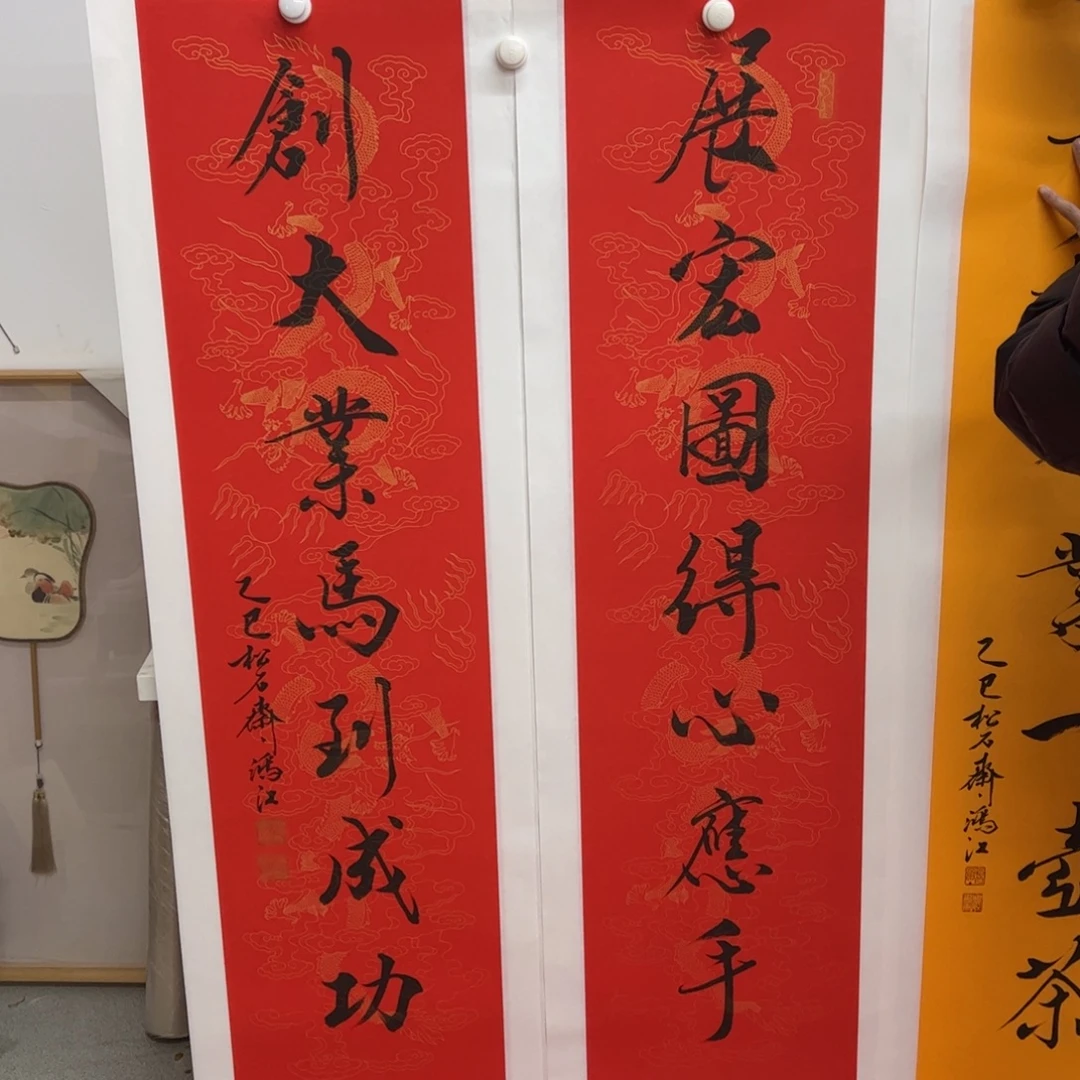 展宏圖得心應手
創大業馬到成功
乙巳松石齋鴻江
業一壺茶
乙巳松石齋鴻江